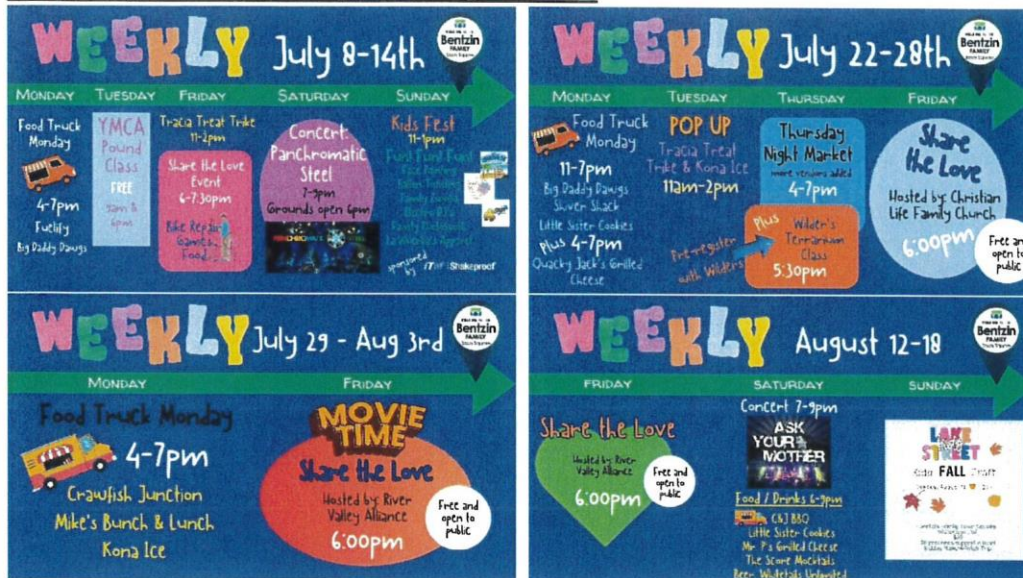 WEEKLY July 8-14th
Bentzin
FAMILY
MONDAY
TUESDAY
FRIDAY
SATURDAY
SUNDAY
Food Truck
Monday
4-7pm
Fuelify
Big Daddy Dawgs
YMCA
Pound
Class
FREE
9am &
6pm
Tracia Treat Trike
11-2pm
Share the Love
Event
6-7:30pm
Bike Repair
Games
Food
Concert:
Panchromatic
Steel
7-9pm
Grounds open 6pm
Kids Fest
11-1pm
Fun! Fun! Fun!
Face Painting
sponsored by ITW Shakeproof
WEEKLY July 22-28th
Bentzin
FAMILY
MONDAY
TUESDAY
THURSDAY
FRIDAY
Food Truck
Monday
11-7pm
Big Daddy Dawgs
Shiver Shack
Little Sister Cookies
Plus 4-7pm
Quacky Jack's Grilled
Cheese
POP UP
Tracia Treat
Trike & Kona Ice
11am-2pm
Pre-register
with Wilders
Thursday
Night Market
more vendors added
4-7pm
Plus
Wilder's
Terrarium
Class
5:30pm
Share
the Love
Hosted by Christian
Life Family Church
6:00pm
Free and
open to
public
WEEKLY July 29 - Aug 3rd
Bentzin
FAMILY
MONDAY
FRIDAY
Food Truck Monday
4-7pm
Crawfish Junction
Mike's Bunch & Lunch
Kona Ice
MOVIE
TIME
Share the Love
Hosted by: River
Valley Alliance
6:00pm
Free and
open to
public
WEEKLY August 12-18
Bentzin
FAMILY
FRIDAY
SATURDAY
SUNDAY
Share the Love
Hosted by: River
Valley Alliance
6:00pm
Free and
open to
public
Concert 7-9pm
ASK
YOUR
MOTHER
Food / Drinks 6-9pm
C&J BBQ
Little Sister Cookies
Mr. P's Grilled Cheese
The Score Mocktails
Beer: Whitetails Unlimited
LAKE
STREET
FALL